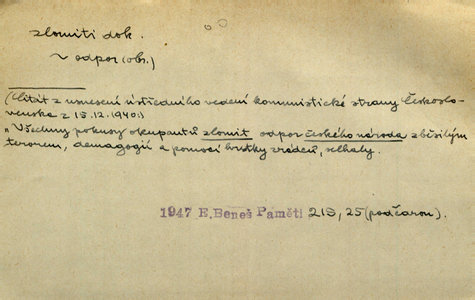 zlomiti dok.
v odpor (obr.)
(Citát z usnesení ústředního vedení komunistické strany Českoslo-
venska z 15.12.1940:)
„Všechny pokusy okupantů zlomit odpor českého národa zběsilým
terorem, demagogií a pomocí hrstky zrádců, selhaly.
1947 E. Beneš Paměti 213, 25 (pod čarou).